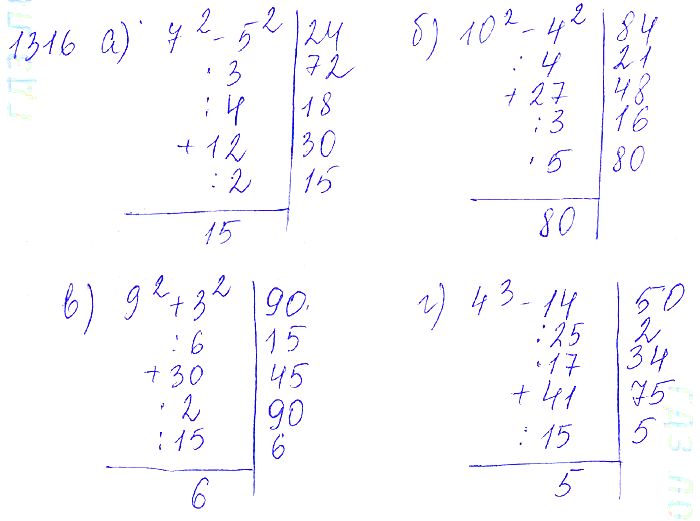 1316 а) 7² - 5² | 24
· 3 | 72
: 4 | 18
+ 12 | 30
: 2 | 15
15
б) 10² - 4² | 84
: 4 | 21
+ 27 | 48
: 3 | 16
· 5 | 80
80
в) 9² + 3² | 90
: 6 | 15
+ 30 | 45
· 2 | 90
: 15 | 6
6
г) 4³ - 14 | 50
: 25 | 2
· 17 | 34
+ 41 | 75
: 15 | 5
5